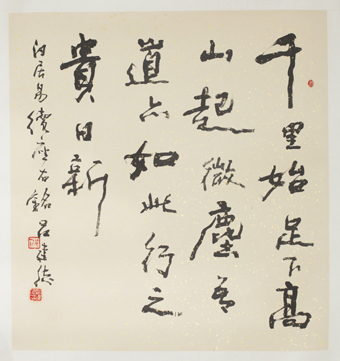 千里始足下高
山起微塵吾
道亦如此行之
貴日新
白居易續座右銘